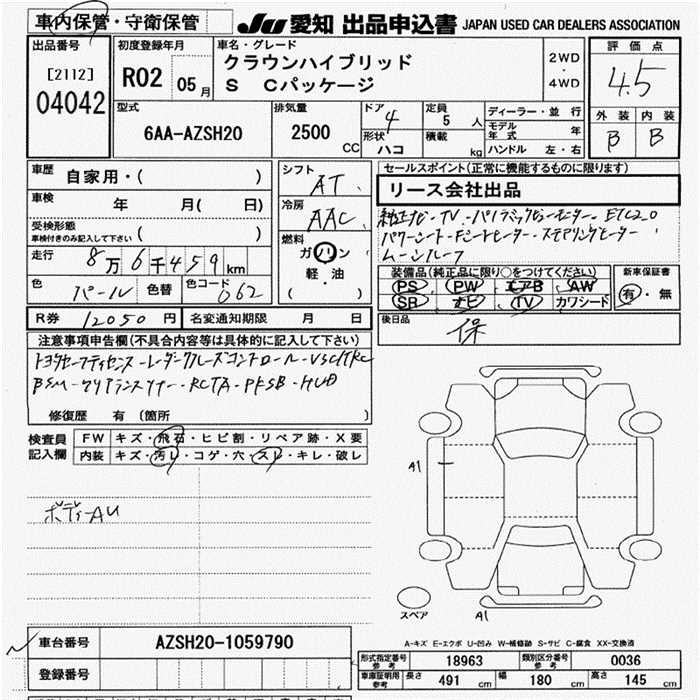 車内保管・守衛保管
JU 愛知 出品申込書 JAPAN USED CAR DEALERS ASSOCIATION
出品番号
[2112]
04042
初度登録年月
R02 05月
車名・グレード
クラウンハイブリッド
S Cパッケージ
2WD
・
4WD
評価点
4.5
外装 内装
B B
型式
6AA-AZSH20
排気量
2500 CC
ドア 4
形状 ハコ
定員 5 人
積載 kg
ディーラー・並行
モデル年式 年
ハンドル 左・右
車歴 自家用・( )
車検 年 月( 日)
受検形態
車検付きのみ記入して下さい ( )
走行 8万6千459km
色 パール 色替 色コード 062
シフト AT
冷房 AAC
燃料 ガソリン
軽・油
( )
セールスポイント(正常に機能するものに限ります)
リース会社出品
純正ナビ・TV・パノラミックビューモニター・ETC2.0
パワーシート・Fシートヒーター・ステアリングヒーター
ムーンルーフ
装備品(純正品に限り○をつけてください)
PS PW エアB AW
SR ナビ TV カワシード
新車保証書
有・無
R券 12050円 名変通知期限 月 日
後日品 保
注意事項申告欄(不具合内容等は具体的に記入して下さい)
トヨタセーフティセンス・レーダークルーズコントロール・VSC/TRC
BSM・クリアランスソナー・RCTA・PKSB・HUD
修復歴 有 (箇所 )
検査員記入欄
FW キズ・飛石・ヒビ割・リペア跡・X要
内装 キズ・汚レ・コゲ・穴・スレ・キレ・破レ
ボディーAU
A1
A1
スペア
A-キズ E-エクボ U-凹み W-補修跡 S-サビ C-腐食 XX-交換済
車台番号 AZSH20-1059790
登録番号
形式指定番号 参考 18963 類別区分番号 参考 0036
車庫証明用 参考 長さ 491 cm 幅 180 cm 高さ 145 cm